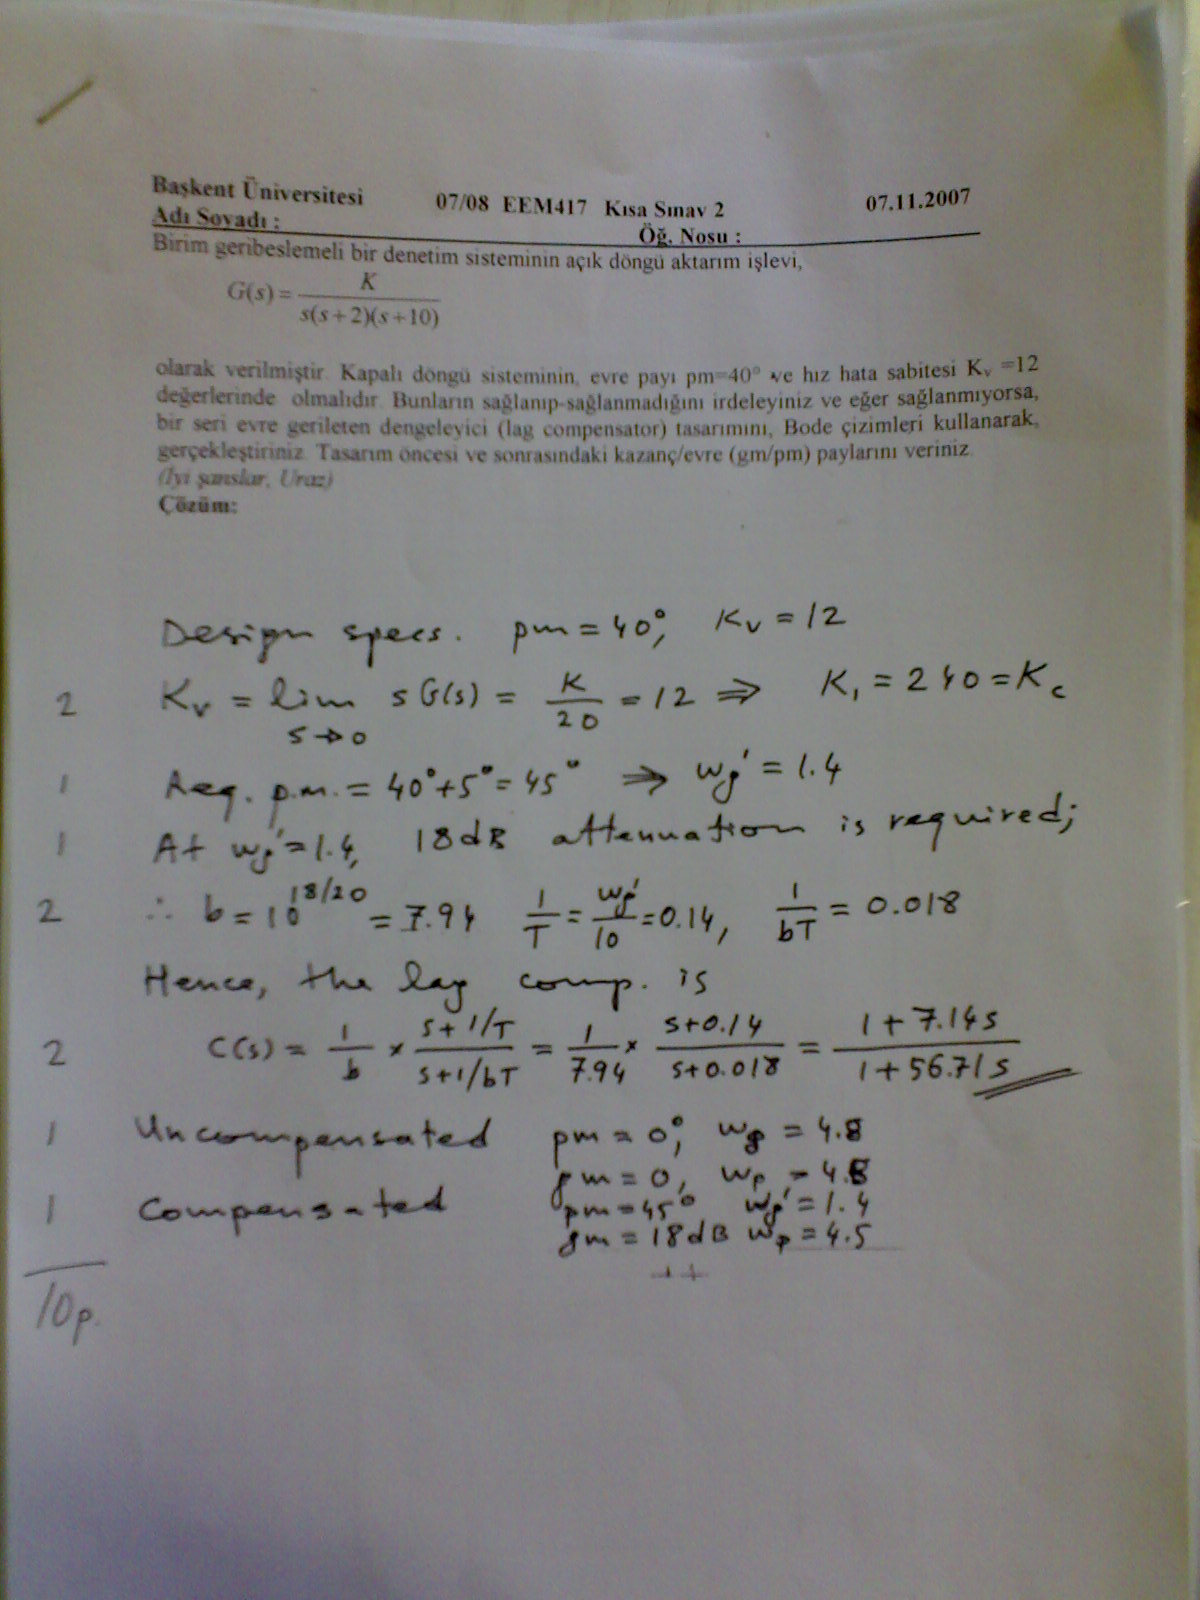 Başkent Üniversitesi 07/08 EEM417 Kısa Sınav 2 07.11.2007
Adı Soyadı : Öğ. Nosu :
Birim geribeslemeli bir denetim sisteminin açık döngü aktarım işlevi,
G(s) = K / s(s+2)(s+10)
olarak verilmiştir. Kapalı döngü sisteminin, evre payı pm=40° ve hız hata sabitesi Kv =12
değerlerinde olmalıdır. Bunların sağlanıp-sağlanmadığını irdeleyiniz ve eğer sağlanmıyorsa,
bir seri evre gerileten dengeleyici (lag compensator) tasarımını, Bode çizimleri kullanarak,
gerçekleştiriniz. Tasarım öncesi ve sonrasındaki kazanç/evre (gm/pm) paylarını veriniz.
(İyi şanslar, Uraz)
Çözüm:
Design specs. pm = 40°, Kv = 12
2 Kv = lim s→0 s G(s) = K/20 = 12 ⇒ K1 = 240 = Kc
1 Req. p.m. = 40°+5° = 45° ⇒ wg' = 1.4
1 At wg' = 1.4, 18dB attenuation is required;
2 ∴ b = 10^18/20 = 7.94 1/T = wg'/10 = 0.14, 1/bT = 0.018
Hence, the lag comp. is
2 C(s) = 1/b × s+1/T / s+1/bT = 1/7.94 × s+0.14 / s+0.018 = 1+7.14s / 1+56.71s
1 Uncompensated pm = 0°, wg = 4.8
gm = 0, wp = 4.8
1 Compensated pm = 45° wg' = 1.4
gm = 18dB wp = 4.5
10p.